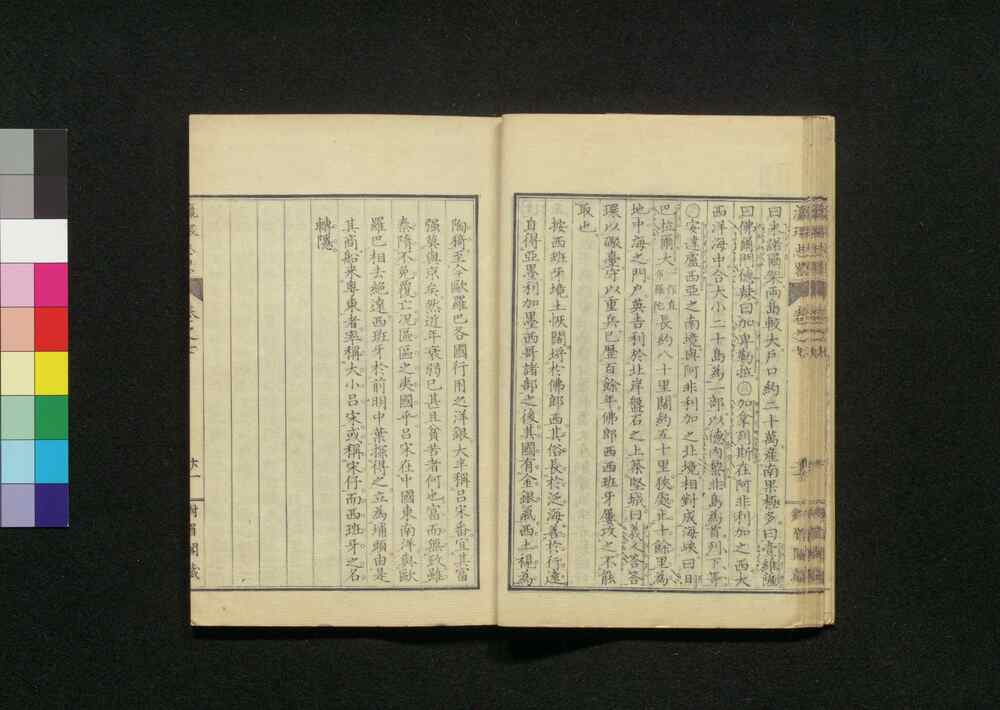 曰米諾爾架兩島較大戶口約二十萬產南果極多曰意維薩
曰佛爾門德拉曰加卑勒拉加拿列斯在阿非利加之西大
西洋海中合大小二十島為一部以德內黎非島為首列下等
安達盧西亞之南境與阿非利加之北境相對成海峽曰日
巴拉爾大 一作直布羅陀 長約八十里闊約五十里狹處止十餘里為
地中海之門戶英吉利於北岸盤石之上築堅城曰義人答答
環以礮臺守以重兵已歷百餘年佛郎西西班牙屢攻之不能
取也
按西班牙境土恢闊埒於佛郎西其俗長於泛海善於行遠
自得亞墨利加墨西哥諸部之後其國有金銀氣西土稱為
陶猗至今歐羅巴各國行用之洋銀大半稱呂宋番宜其富
强莫與京矣然近年衰弱已甚且貧苦者何也富而無政雖
秦隋不免覆亡况區區之夷國乎呂宋在中國東南洋與歐
羅巴相去絕遠西班牙於前明中葉據得之立為埔頭由是
其商船來粵東者率稱大小呂宋或稱宋仔而西班牙之名
轉隱